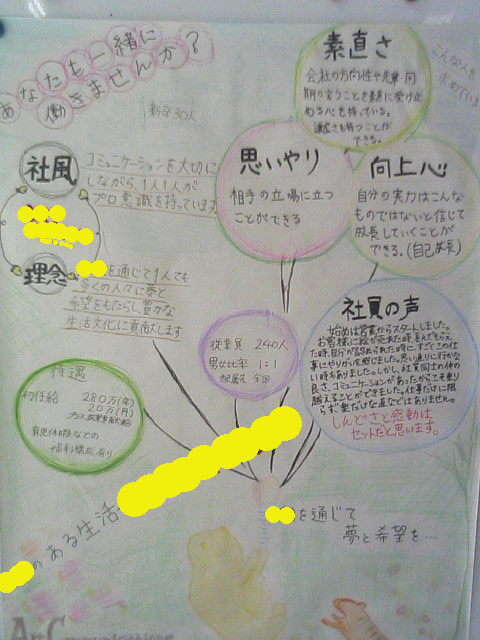 あなたも一緒に
働きませんか?
新卒30人
こんな人を
求めています
素直さ
会社の方向性や先輩・同
期の言うことを素直に受け止
める心を持っている。
謙虚さを持つことが
できる。
思いやり
相手の立場に立つ
ことができる
向上心
自分の実力はこんな
ものではないと信じて
成長していくことが
できる。(自己成長)
社風
コミュニケーションを大切に
しながら、1人1人が
プロ意識を持っています
理念
を通じて1人でも
多くの人々に夢と
希望をもたらし、豊かな
生活文化に貢献します
社員の声
始めは営業からスタートしました。
お客様に絵が売れた時、喜んでもらえ
た時、自分が認められた時に、すごくこの仕
事にやりがいを感じました。思い通りに行かな
い時もありました。しかし、社員同士の仲の
良さ、コミュニケーションがあったからこそ乗り
越えることができました。仕事だけに限
らず、楽だけな道などはありません。
しんどさと感動は
セットだと思います。
従業員 240人
男女比率 1:1
配属先 全国
待遇
初任給 280万(年)
20万(月)
育児休暇などの
福利構成有り
のある生活
を通じて
夢と希望を…